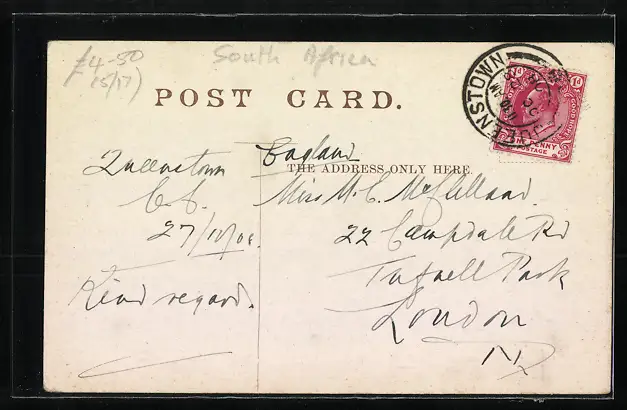 £4-50
15/17)
South Africa
POST CARD.
QUEENSTOWN
1d 1d
GOOD HOPE
ONE PENNY
POSTAGE
Queenstown
C.C.
27/10/08.
Kind regards.
England
THE ADDRESS ONLY HERE.
Miss M. C. McClelland.
22 Campdale Rd
Tufnell Park
London
N